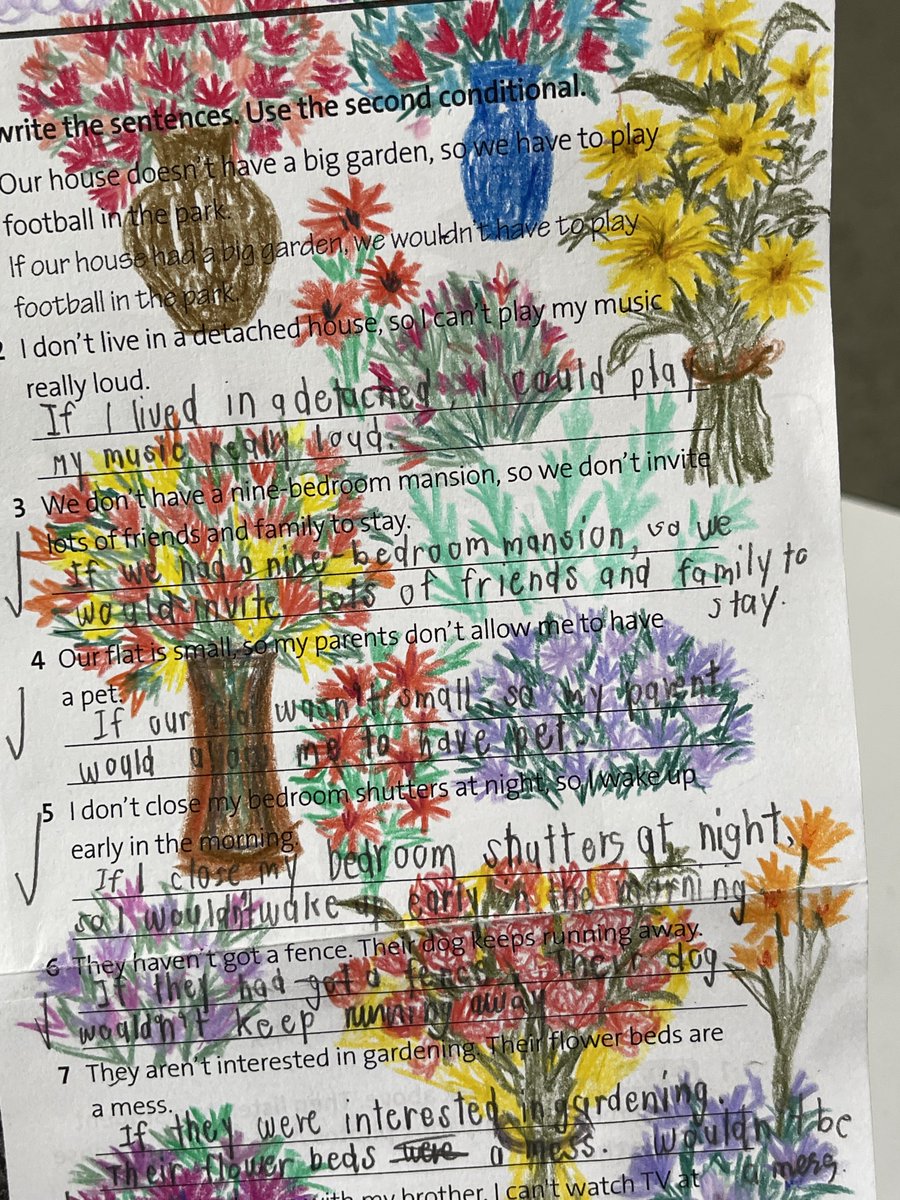 write the sentences. Use the second conditional.
Our house doesn't have a big garden, so we have to play
football in the park.
If our house had a big garden, we wouldn't have to play
football in the park.
2 I don't live in a detached house, so I can't play my music
really loud.
If I lived in a detached, I could play
my music really loud.
3 We don't have a nine-bedroom mansion, so we don't invite
lots of friends and family to stay.
If we had a nine-bedroom mansion, so we
would invite lots of friends and family to
stay.
4 Our flat is small, so my parents don't allow me to have
a pet.
If our flat wasn't small, so my parent
would allow me to have pet.
5 I don't close my bedroom shutters at night, so I wake up
early in the morning.
If I close my bedroom shutters at night,
so I wouldn't wake up early in the morning
6 They haven't got a fence. Their dog keeps running away.
If they had got a fence, their dog
wouldn't keep running away
7 They aren't interested in gardening. Their flower beds are
a mess.
If they were interested in gardening.
Their flower beds were a mess. wouldn't be
a mess.
with my brother. I can't watch TV at